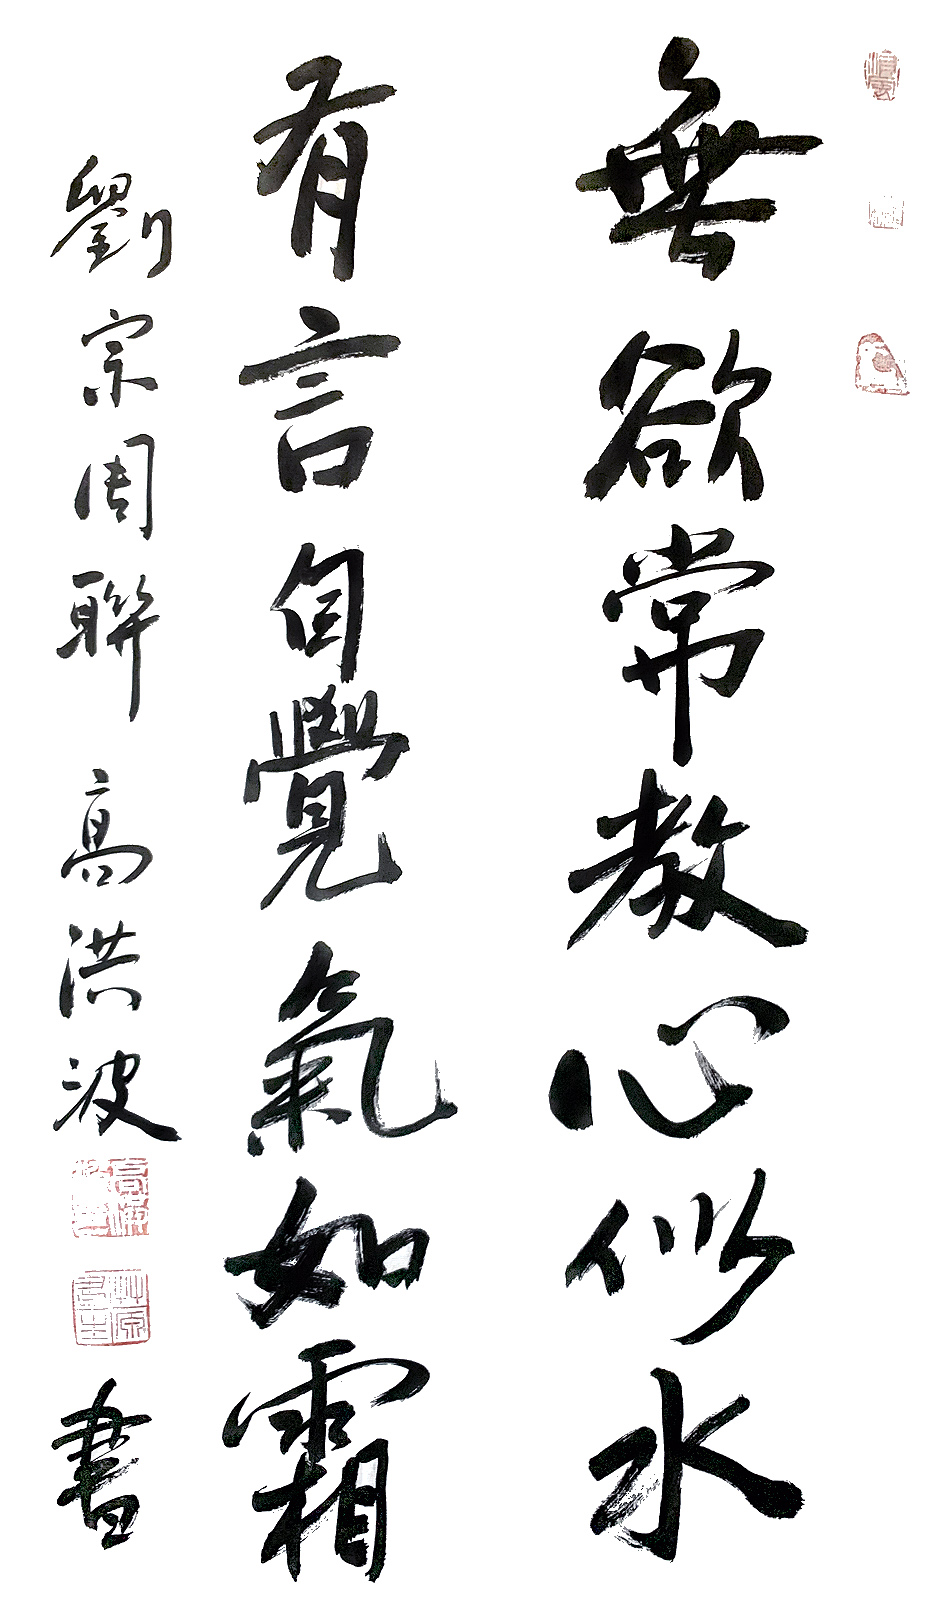 無欲常教心似水
有言自覺氣如霜
劉宗周聯 高洪波
書